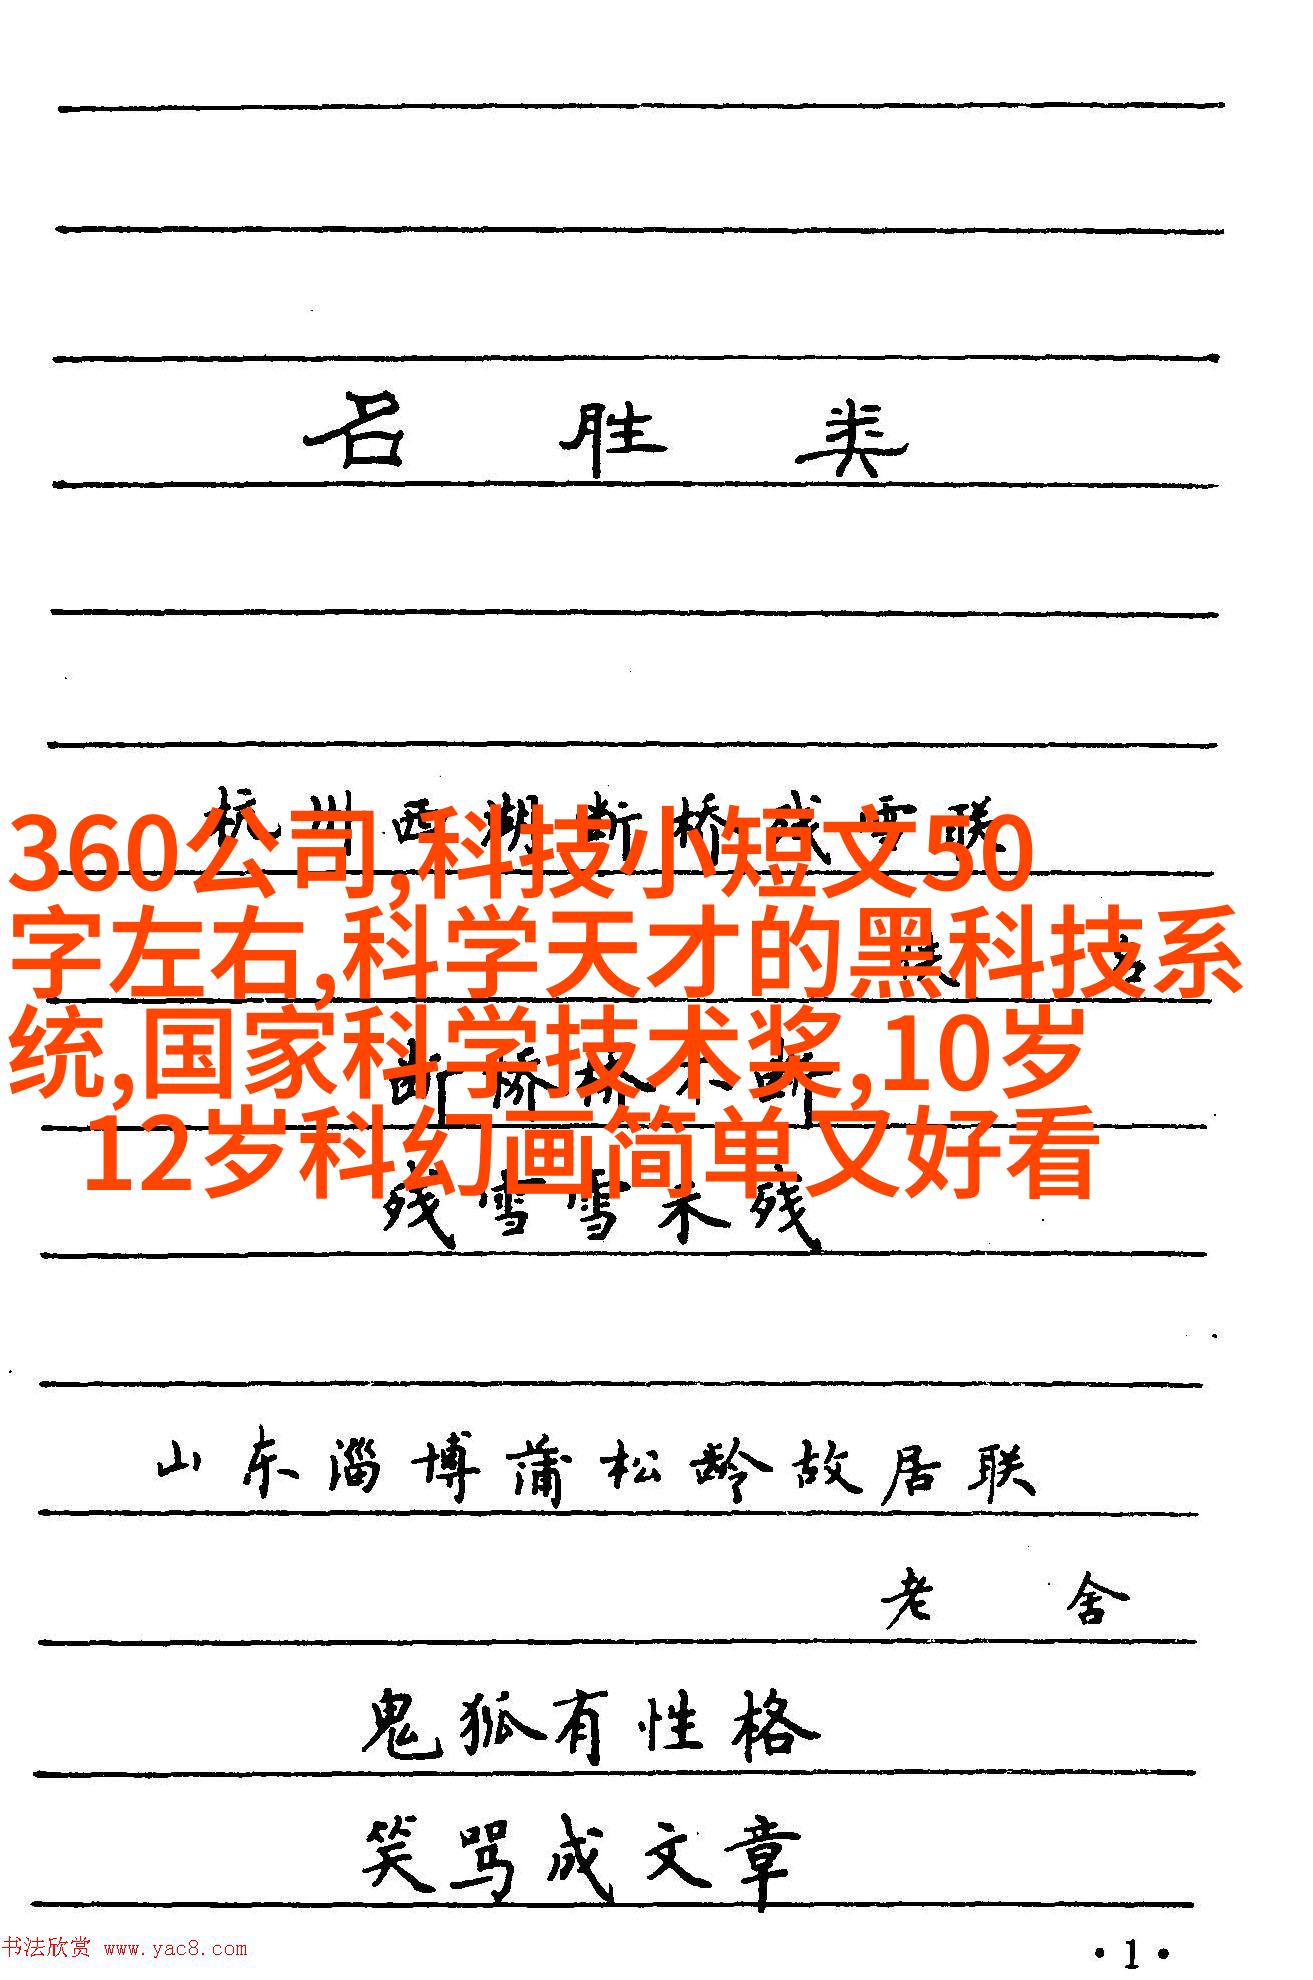 名胜类
杭州西湖断桥残雪联
360公司,科技小短文50
字左右,科学天才的黑科技系
统,国家科学技术奖,10岁
12岁科幻画简单又好看
断桥桥不断
残雪雪未残
山东淄博蒲松龄故居联
老舍
鬼狐有性格
笑骂成文章
书法欣赏 www.yac8.com
·1·